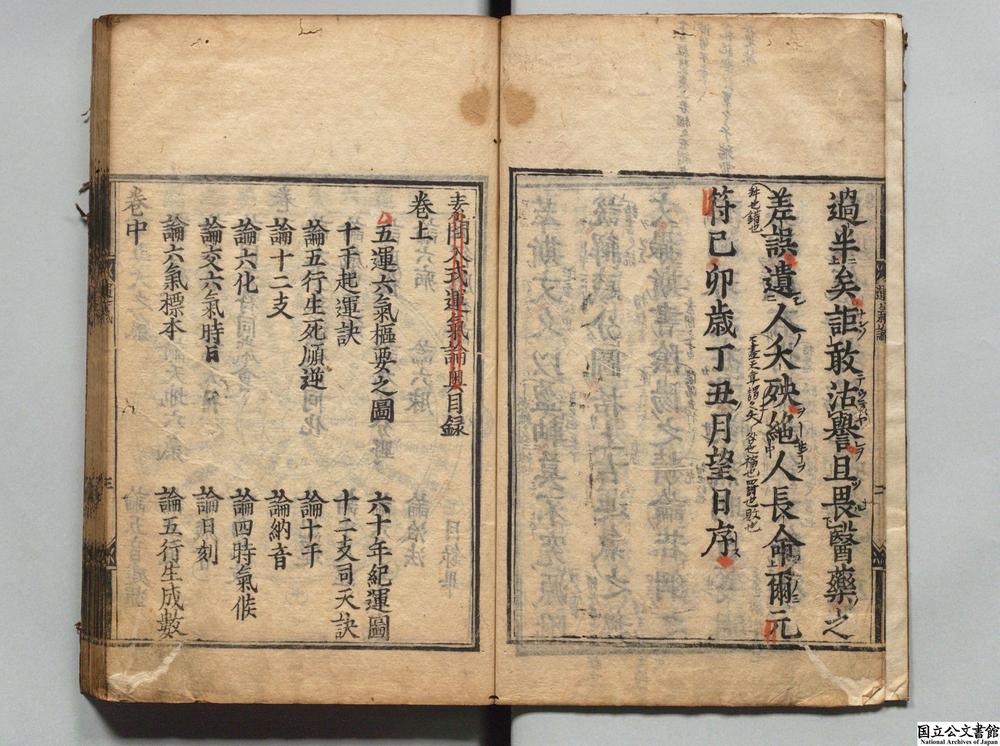 過半矣詎敢沽譽且畏醫藥之
差誤遺人夭殃絕人長命爾元
符己卯歲丁丑月望日序
素問入式運氣論奧目録
卷上
五運六氣樞要之圖
六十年紀運圖
十干起運訣
十二支司天訣
論五行生死順逆同化
論十干
論十二支
論納音
論六化
論四時氣候
論交六氣時日
論日刻
論六氣標本
論五行生成數
卷中
国立公文書館
National Archives of Japan